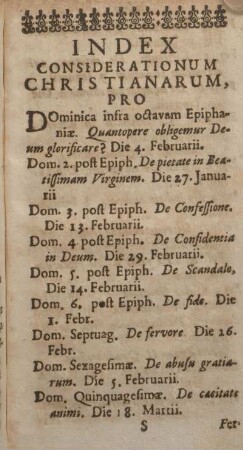 INDEX
CONSIDERATIONUM
CHRISTIANARUM,
PRO
DOminica infra octavam Epipha-
niæ. Quantopere obligemur De-
um glorificare? Die 4. Februarii.
Dom. 2. post Epiph. De pietate in Bea-
tissimam Virginem. Die 27. Janua-
rii
Dom. 3. post Epiph. De Confessione.
Die 13. Februarii.
Dom. 4 post Epiph. De Confidentia
in Deum. Die 29. Februarii.
Dom. 5. post Epiph. De Scandalo,
Die 14. Februarii.
Dom. 6. post Epiph. De fide. Die
1. Febr.
Dom. Septuag. De fervore. Die 26.
Febr.
Dom. Sexagesimæ. De abusu gratia-
rum. Die 5. Februarii.
Dom. Quinquagesimæ. De cæcitate
animi. Die 18. Martii.
S Fer-